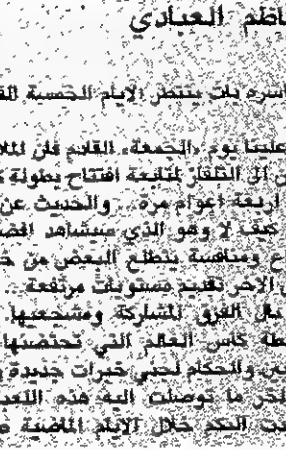 كاظم العبادي
باسره بات ينتظر الايام الخمسة
علينا يوم «الجمعة» القادم فان
الى التلفاز لمتابعة افتتاح بطولة
اربعة اعوام مرة.. والحديث عن
كيف لا وهو الذي سيشاهد افضل
ومنافسة يتطلع البعض من
الاخر تقديم مستويات مرتفعة..
بال الفرق المشاركة ومشجعيها
كاس العالم التي تحتضنها
والحكام لجني خبرات جديدة
ما توصلت اليه هذه اللعبة
اليكم خلال الايام الماضية